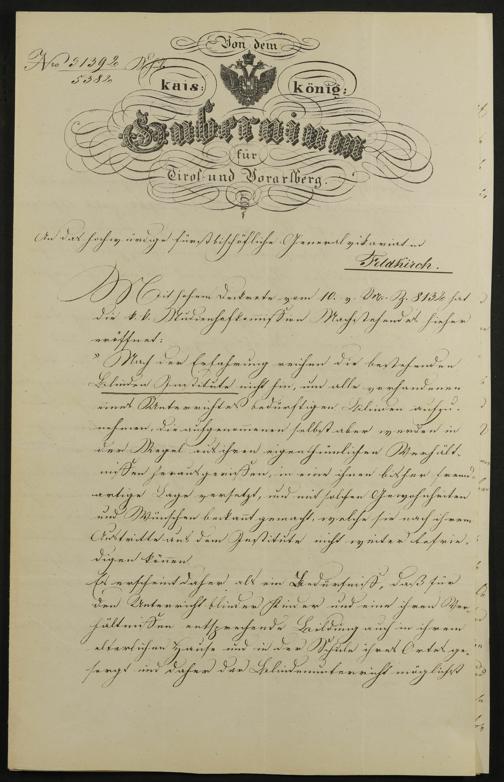 Von dem
Nro 21392
5382
kais: könig:
Gubernium
für
Tirol und Vorarlberg.
An das hochwürdige fürstbischöfliche Generalvikariat in
Feldkirch.
Mit hohem Dekrete vom 10. v. Mts. Z. 8132 hat
die k. k. Studienhofkommißion Nachstehendes hieher
eröffnet:
" Nach der Erfahrung reichen die bestehenden
Blinden Institute nicht hin, um alle vorhandenen
eines Unterrichtes bedürftigen Blinden aufzu-
nehmen, die aufgenommenen selbst aber werden in
der Regel aus ihren eigenthümlichen Verhält-
nißen herausgerißen, in eine ihnen bisher fremd-
artige Lage versetzt, und mit solchen Gewohnheiten
und Wünschen bekannt gemacht, welche sie nach ihrem
Austritte aus dem Institute nicht weiter befrie-
digen könen
Es erscheint daher als ein Bedürfniß, daß für
den Unterricht blinder Kinder und eine ihren Ver-
hältnißen entsprechende Bildung auch in ihrem
elterlichen Hause und in der Schule ihres Ortes ge-
sorgt und daher der Blindenunterricht möglichst